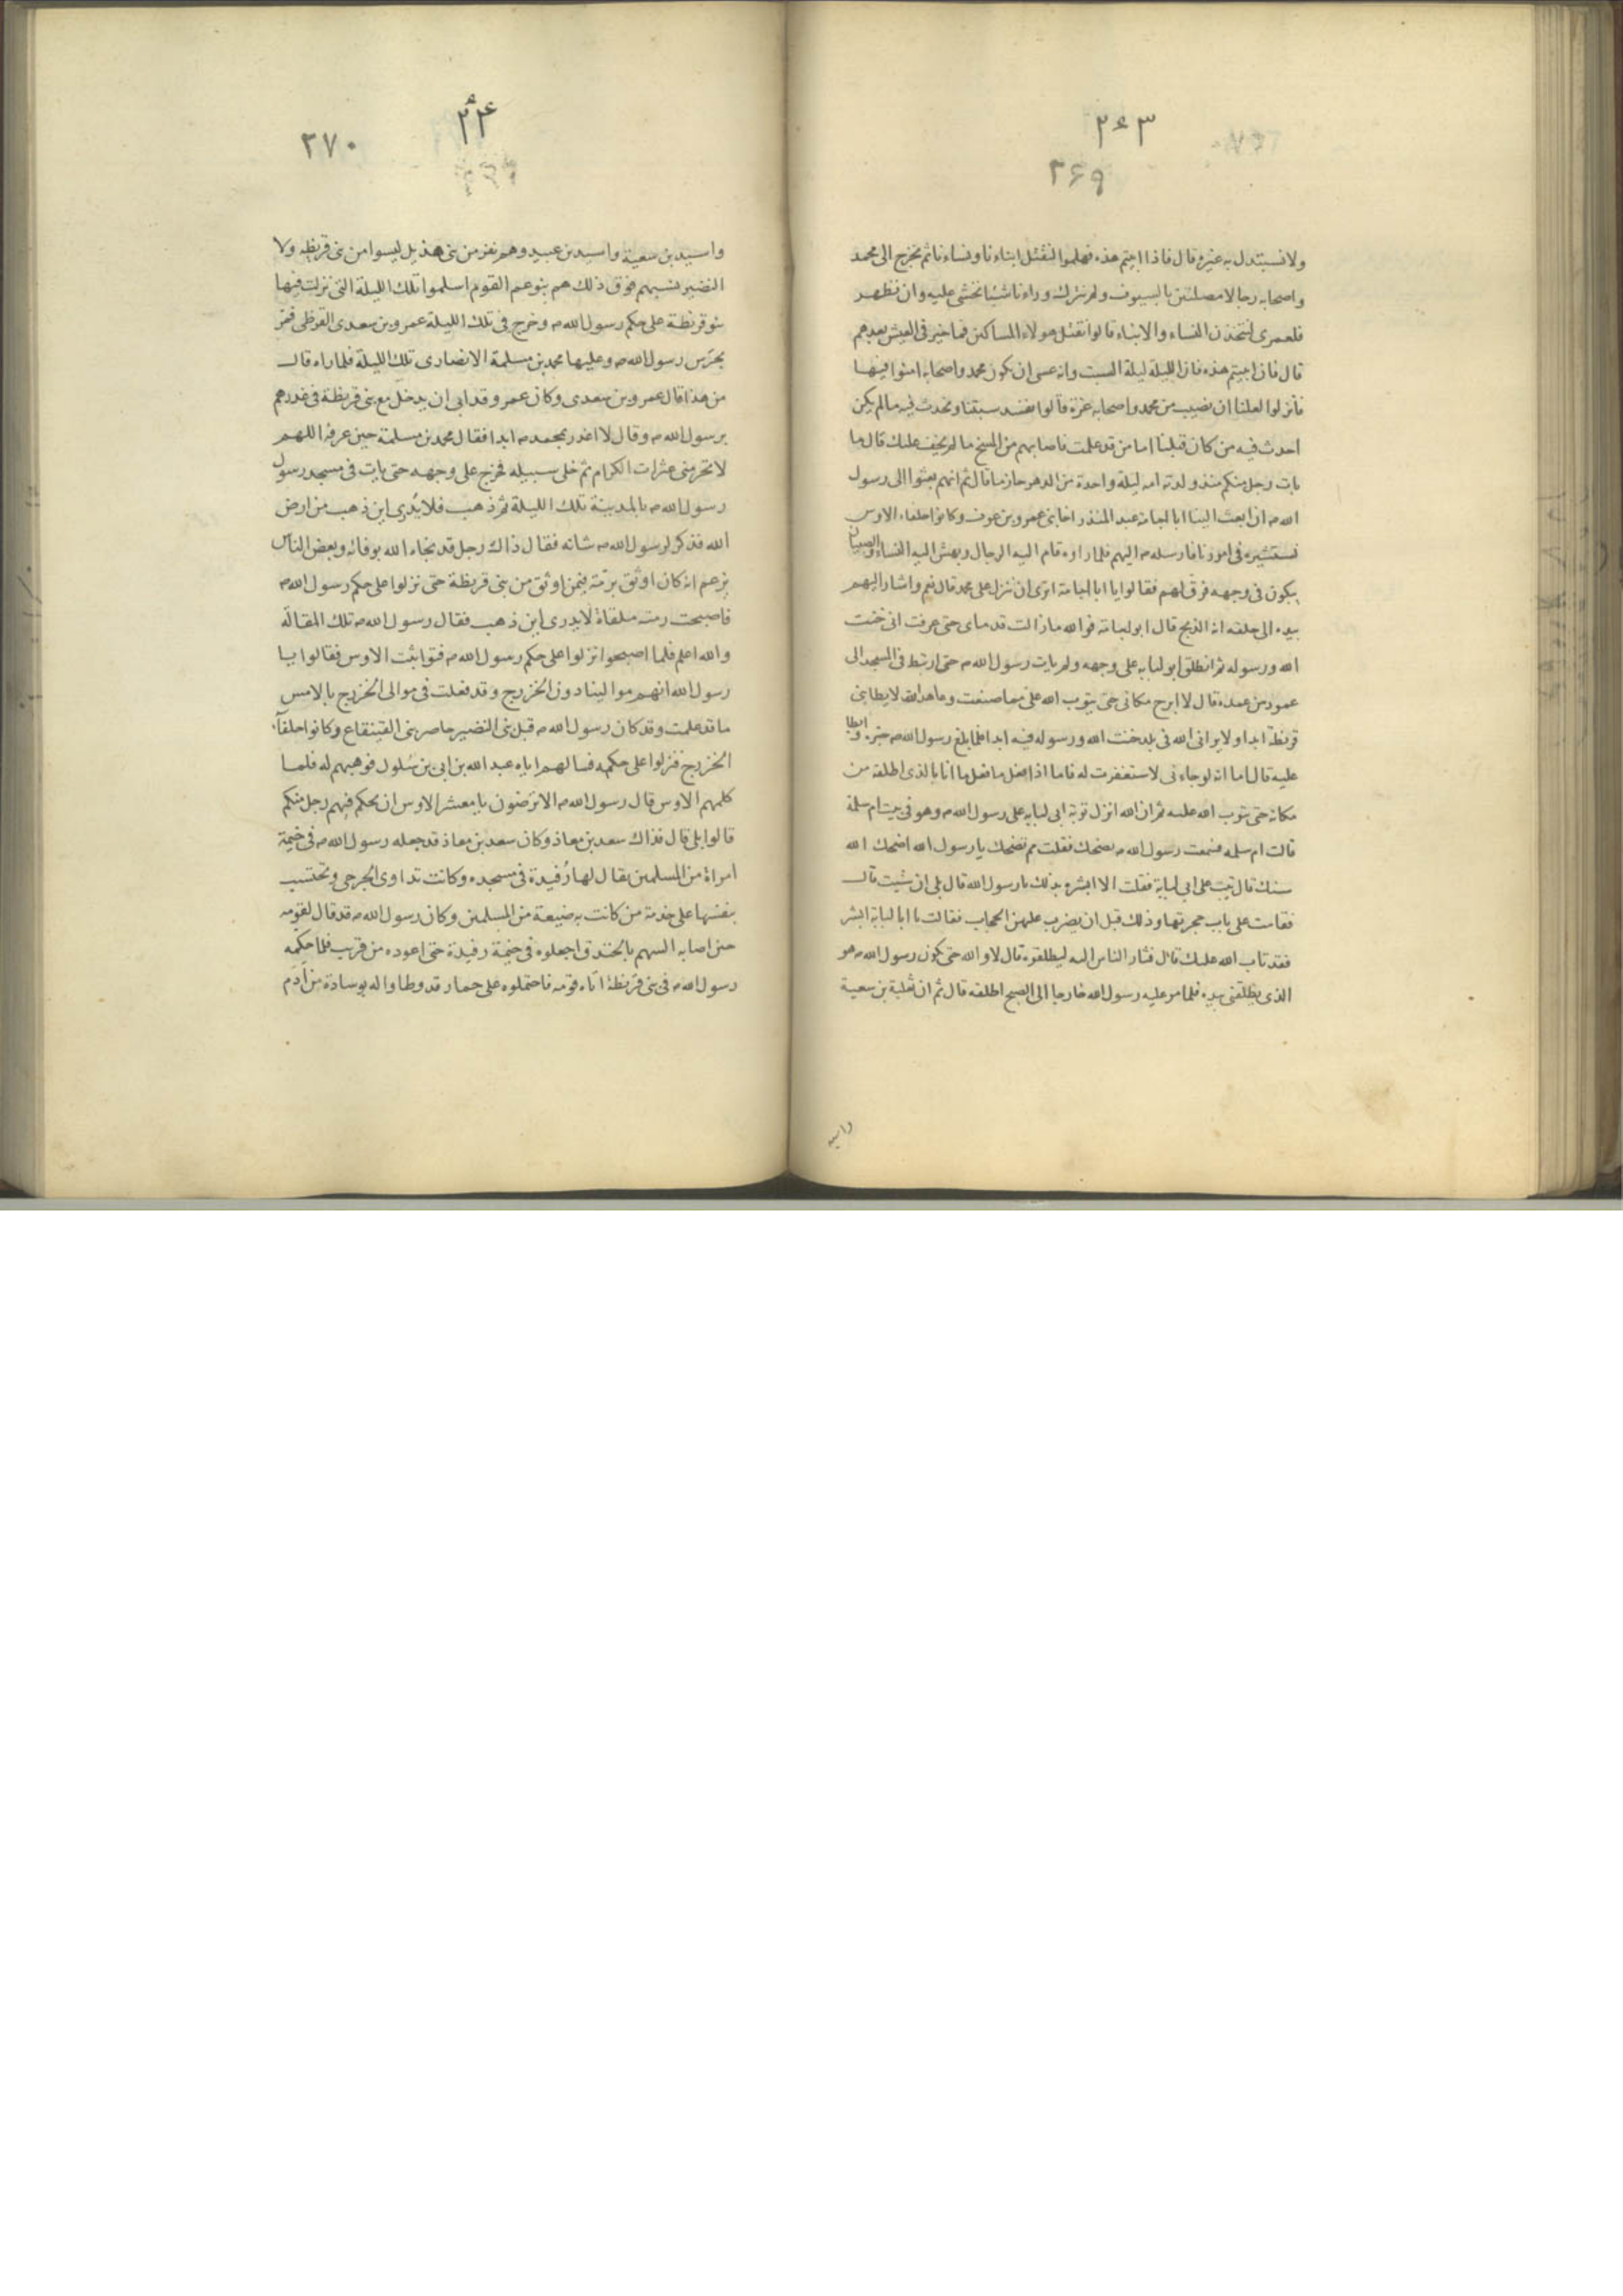 ٢٦٣
٢٦٩
ولا نستبدل به غيره قال فاذا ابيتم هذه فهلموا لنقتل ابناءنا ونساءنا ثم نخرج الى محمد
واصحابه رجالا مصلتين بالسيوف ولم نترك وراءنا شيئا نخشى عليه وان نظهر
فلعمرى لنتخذن النساء والابناء قالوا نقتل هولاء المساكين فما خير فى العيش بعدهم
قال فان ابيتم هذه فان الليلة ليلة السبت وانه عسى ان يكون محمد واصحابه امنوا فيها
فانزلوا لعلنا ان نصيب من محمد واصحابه غرة قالوا نفسد سبتنا ونحدث فيه مالم يكن
احدث فيه من كان قبلنا اما من قد علمت فاصابهم من المسخ ما لم يخف عليك قال ما
بات رجل منكم منذ ولدته امه ليلة واحدة من الدهر حازما قال ثم انهم بعثوا الى رسول
الله ص ان ابعث الينا ابا لبابة عبد المنذر اخا بنى عمرو بن عوف وكانوا حلفاء الاوس
نستشيره فى امورنا فارسله ص اليهم فلما راوه قام اليه الرجال وبهش اليه النساء والصبيان
يبكون فى وجهه فرق لهم فقالوا يا ابا لبابة اترى ان ننزل على محمد قال نعم واشار اليهم
بيده الى حلقه انه الذبح قال ابو لبابة فوالله ما زالت قدماى حتى عرفت انى خنت
الله ورسوله ثم انطلق ابو لبابه على وجهه ولم يات رسول الله ص حتى ارتبط فى المسجد الى
عمود من عمده قال لا ابرح مكانى حتى يتوب الله على مما صنعت وعاهد الله لا يطا بنى
قريظة ابدا ولا يرانى الله فى بلد خنت الله ورسوله فيه ابدا فلما بلغ رسول الله ص خبره وابطا
عليه قال اما انه لو جاءنى لاستغفرت له فاما اذا فعل ما فعل ما انا بالذى اطلقه من
مكانه حتى يتوب الله عليه ثم ان الله انزل توبة ابى لبابه على رسول الله ص وهو فى بيت ام سلمة
قالت ام سلمه فسمعت رسول الله ص يضحك فقلت مم تضحك يا رسول الله اضحك الله
سنك قال تيب على ابى لبابة فقلت الا ابشره بذلك يا رسول الله قال بلى ان شيت قال
فقامت على باب حجرتها وذلك قبل ان يضرب عليهن الحجاب فقالت يا ابا لبابة ابشر
فقد تاب الله عليك قال فثار الناس اليه ليطلقوه قال لا والله حتى يكون رسول الله ص هو
الذى يطلقنى بيده فلما مر عليه رسول الله خارجا الى الصبح اطلقه قال ثم ان ثعلبة بن سعية
واسيد
٢٦٤
٢٧٠
واسيد بن سعية واسيد بن عبيد وهم نفر من بنى هذيل ليسوا من بنى قريظه ولا
النضير نسبهم فوق ذلك هم بنو عم القوم اسلموا تلك الليلة التى نزلت فيها
بنو قريظة على حكم رسول الله ص وخرج فى تلك الليلة عمرو بن سعدى القرظى فمر
بحرس رسول الله ص وعليها محمد بن مسلمة الانصارى تلك الليلة فلما راه قال
من هذا قال عمرو بن سعدى وكان عمرو قد ابى ان يدخل مع بنى قريظة فى غدرهم
برسول الله ص وقال لا اغدر بمحمد ص ابدا فقال محمد بن مسلمة حين عرفه اللهم
لا تحرمنى عثرات الكرام ثم خلى سبيله فخرج على وجهه حتى بات فى مسجد رسول
رسول الله ص بالمدينة تلك الليلة ثم ذهب فلا يدرى اين ذهب من ارض
الله فذكر لرسول الله ص شانه فقال ذاك رجل قد نجاه الله بوفائه وبعض الناس
يزعم انه كان اوثق برمة فيمن اوثق من بنى قريظة حتى نزلوا على حكم رسول الله ص
فاصبحت رمته ملقاة لا يدرى اين ذهب فقال رسول الله ص تلك المقالة
والله اعلم فلما اصبحوا نزلوا على حكم رسول الله ص فتواثبت الاوس فقالوا يا
رسول الله انهم موالينا دون الخزرج وقد فعلت فى موالى الخزرج بالامس
ما قد علمت وقد كان رسول الله ص قبل بنى النضير حاصر بنى القينقاع وكانوا حلفآء
الخزرج فنزلوا على حكمه فسالهم اياه عبد الله بن ابى بن سلول فوهبهم له فلما
كلمهم الاوس قال رسول الله ص الا ترضون يا معشر الاوس ان يحكم فيهم رجل منكم
قالوا بلى قال فذاك سعد بن معاذ وكان سعد بن معاذ قد جعله رسول الله ص فى خيمة
امراة من المسلمين يقال لها رُفيدة فى مسجده وكانت تداوى الجرحى وتحتسب
بنفسها على خدمة من كانت به ضيعة من المسلمين وكان رسول الله ص قد قال لقومه
حين اصابه السهم بالخندق اجعلوه فى خيمة رفيدة حتى اعوده من قريب فلما حكمه
رسول الله ص فى بنى قريظة اتاه قومه فاحتملوه على حمار قد وطاوا له بوسادة من ادم